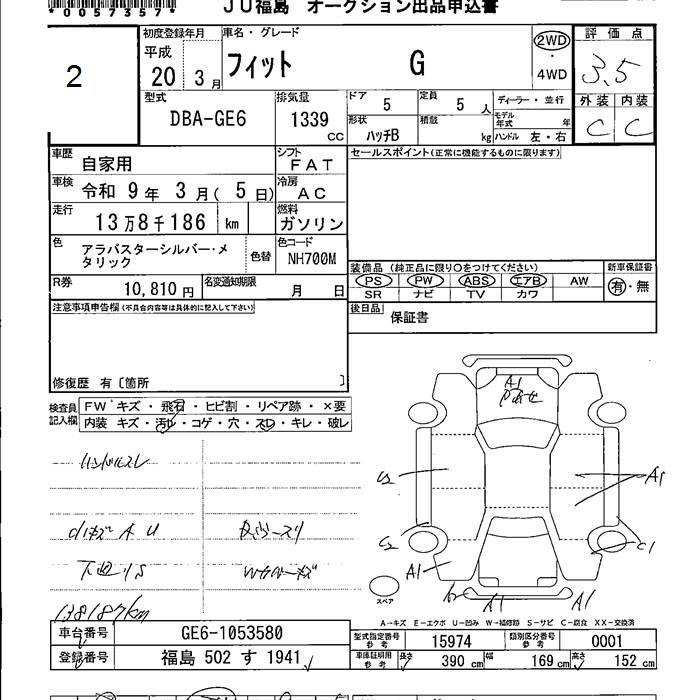 *0057357*
JU福島 オークション出品申込書
2
初度登録年月 車名・グレード
平成 20 3月 フィット G
2WD ・ 4WD
評価点
3.5
外装 内装
C C
型式 DBA-GE6
排気量 1339 cc
ドア 5 定員 5 人
形状 ハッチB 積載 kg
ディーラー・並行
モデル年式 年
ハンドル 左・右
車歴 自家用
シフト FAT
セールスポイント(正常に機能するものに限ります)
車検 令和 9年 3月( 5日)
冷房 AC
走行 13万8千186 km
燃料 ガソリン
色 アラバスターシルバー・メタリック 色替
色コード NH700M
R券 10,810円
名変通知期限 月 日
装備品 (純正品に限り○をつけてください) 新車保証書
PS PW ABS エアB AW 有・無
SR ナビ TV カワ
後日品 保証書
注意事項申告欄(不具合内容等は具体的に記入して下さい)
修復歴 有〔箇所 〕
検査員記入欄
FW キズ・飛石・ヒビ割・リペア跡・×要
内装 キズ・汚レ・コゲ・穴・スレ・キレ・破レ
ハンドルスレ
小キズ A U
下廻りS
138187km
A1
A1
C1
A1
A1
A1
スペア
A→キズ E→エクボ U→凹み W→補修跡 S→サビ C→腐食 XX→交換済
車台番号 GE6-1053580
登録番号 福島 502 す 1941
型式指定番号 参考 15974 類別区分番号 参考 0001
車庫証明用 参考 長さ 390 cm 幅 169 cm 高さ 152 cm